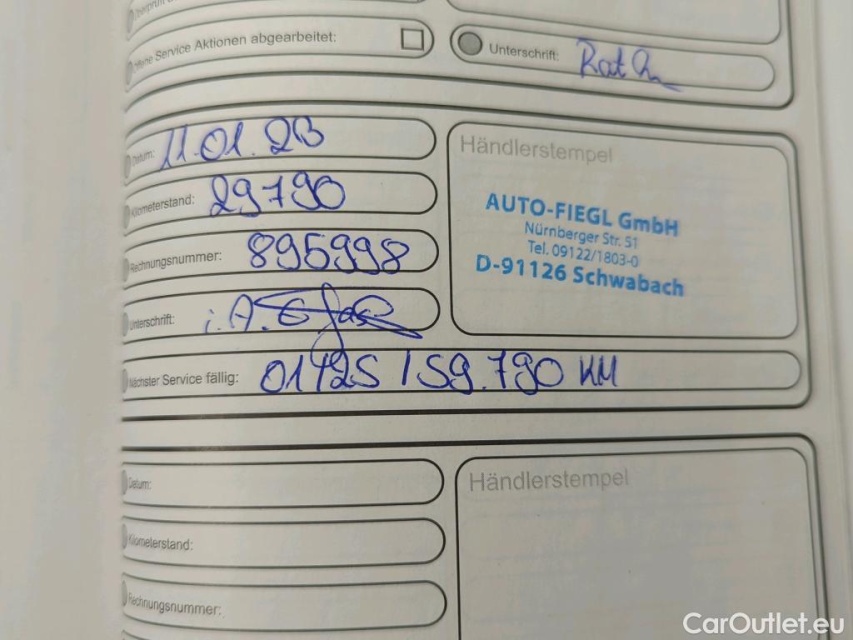 Service Aktionen abgearbeitet:
Unterschrift:
Datum: 11.01.23
Kilometerstand: 29790
Rechnungsnummer: 895998
Unterschrift: i.A.
Händlerstempel
AUTO-FIEGL GmbH
Nürnberger Str. 51
Tel. 09122/1803-0
D-91126 Schwabach
Nächster Service fällig: 01/25 / 59.790 KM
Datum:
Kilometerstand:
Rechnungsnummer:
Händlerstempel
CarOutlet.eu